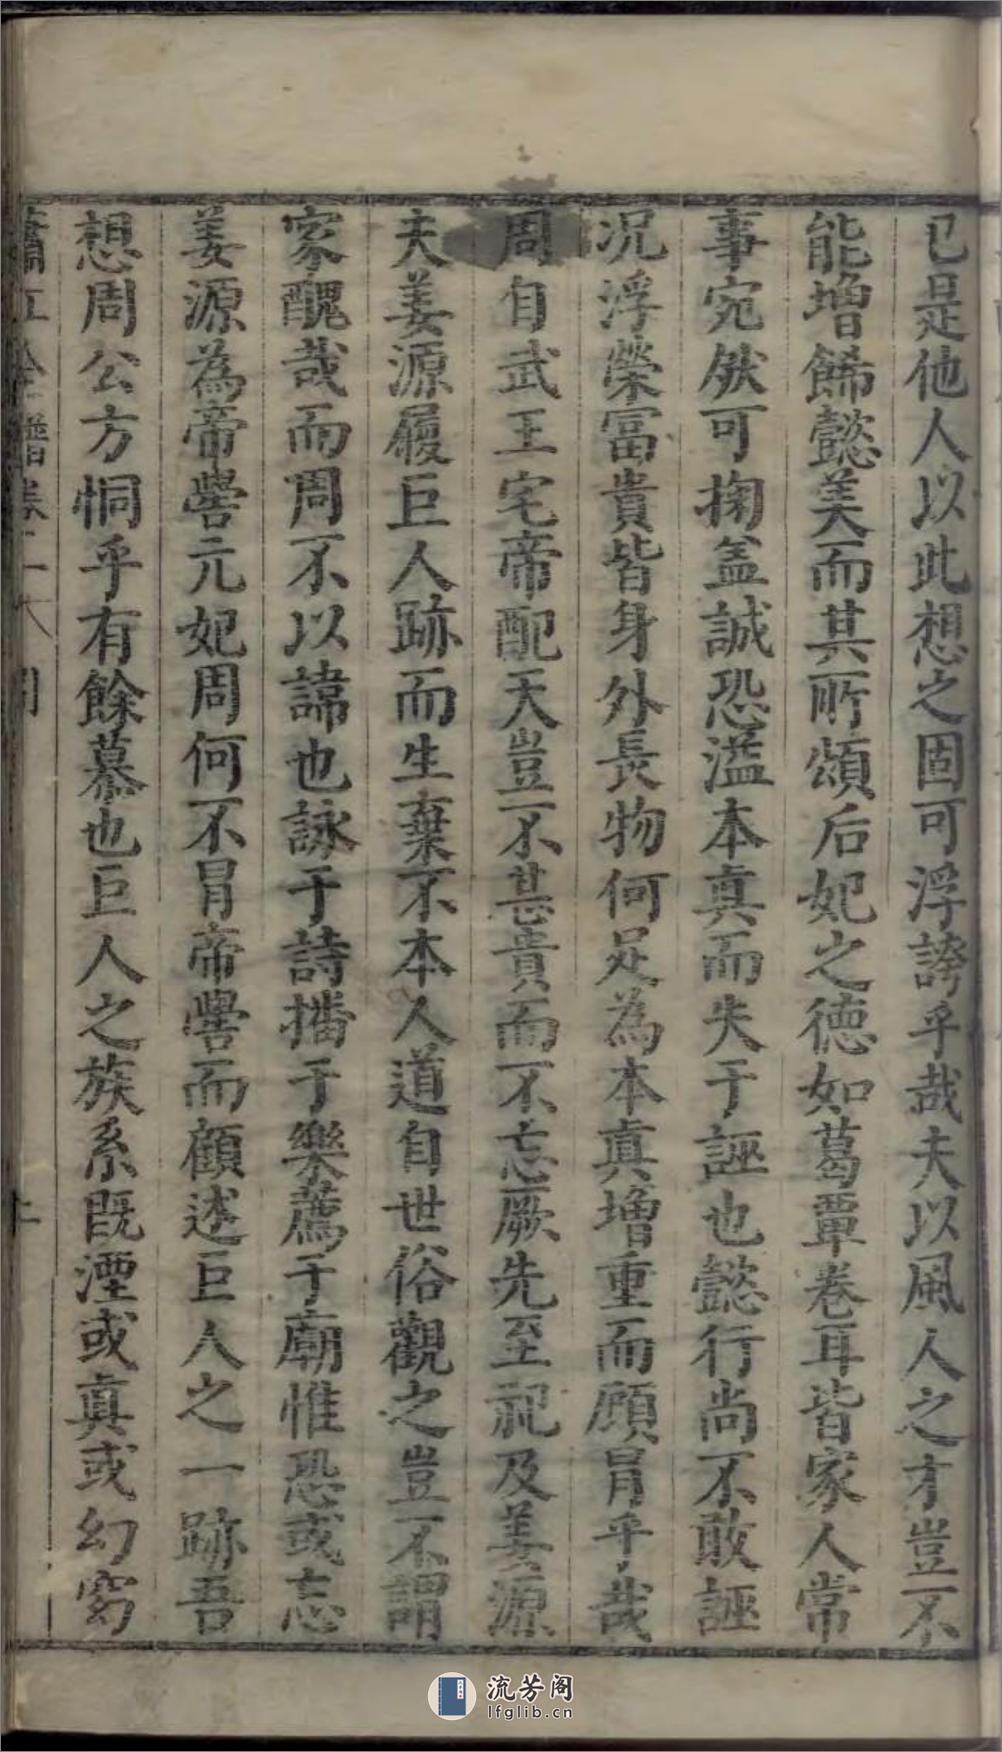 已是他人以此想之固可浮誇乎哉夫以風人之才豈不
能增餙懿美而其所頌后妃之德如葛覃卷耳皆家人常
事宛然可掬盖誠恐溢本真而失于誣也懿行尚不敢誣
况浮榮冨貴皆身外長物何足為本真增重而顧冐乎哉
周自武王宅帝配天豈不甚貴而不忘厥先至祀及姜源
夫姜源履巨人跡而生棄不本人道自世俗觀之豈不謂
家醜哉而周不以諱也詠于詩播于樂薦于廟惟恐或忘
姜源為帝嚳元妃周何不冐帝嚳而顧述巨人之一跡吾
想周公方恫乎有餘慕也巨人之族系既湮或真或幻窈
蕭江全譜卷二
流芳阁
lfglib.cn